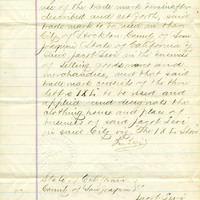 use of the trade mark hereinafter
described and set forth, said
trade mark to be used in the
City of Stockton County of San
Joaquin State of California by
said Jacob Levi in the business
of selling goods wares and
merchandise, and that said
trade mark consists of the three
letters I X L to be used and
applied and designate the
clothing house and place of
business of said Jacob Levi
in said City viz The I X L Store
J. Levi
State of California
County of San Joaquin SS
Jacob Levi